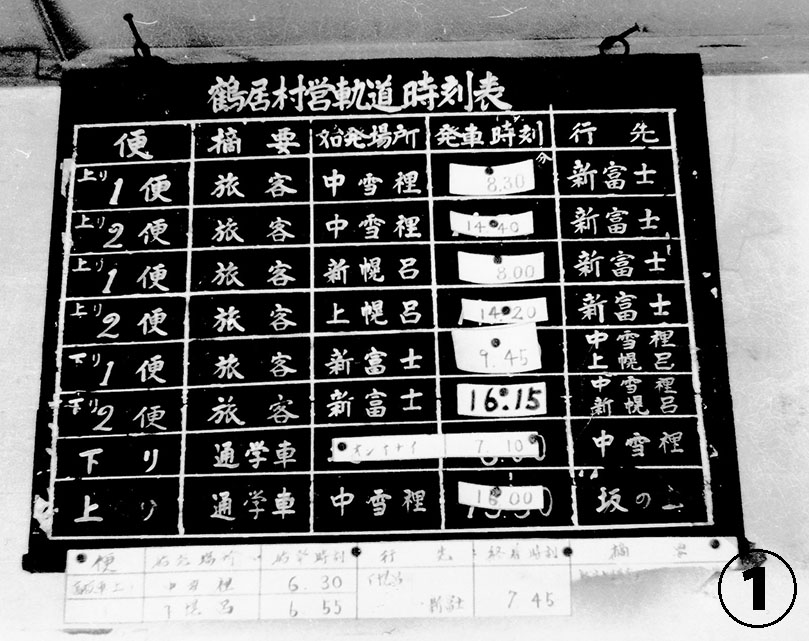 鶴居村営軌道時刻表
便 摘要 始発場所 発車時刻 行先
分
上り1便 旅客 中雪裡 8.30 新富士
上り2便 旅客 中雪裡 14.40 新富士
上り1便 旅客 新幌呂 8.00 新富士
上り2便 旅客 上幌呂 14.20 新富士
下り1便 旅客 新富士 9.45 中雪裡 上幌呂
下り2便 旅客 新富士 16.15 中雪裡 新幌呂
下り 通学車 7.10 中雪裡
上り 通学車 中雪裡 16.00 坂の上
便 始発場所 始発時刻 行先 終着時刻 摘要
中雪裡 6.30
下幌呂 6.55 7 45
1